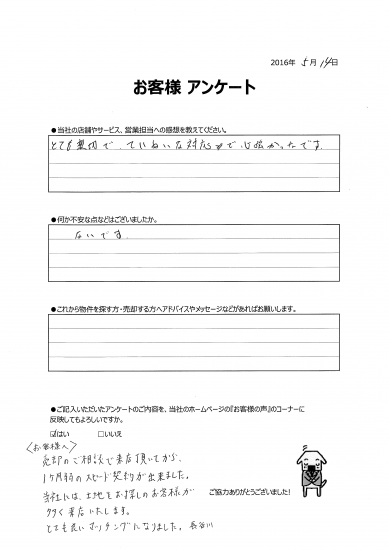 2016年 5月 14日
お客様 アンケート
●当社の店舗やサービス、営業担当への感想を教えてください。
とても親切で、ていねいな対応で心強かったです。
●何か不安な点などはございましたか。
ないです。
●これから物件を探す方・売却する方へアドバイスやメッセージなどがあればお願いします。
●ご記入いただいたアンケートのご内容を、当社のホームページの『お客様の声』のコーナーに
反映してもよろしいですか。
☑はい □いいえ
〈お客様へ〉
売却のご相談で来店頂いてから、
1ヶ月弱のスピード契約が出来ました。
当社には、土地をお探しのお客様が
多く来店いたします。
とても良いマッチングになりました。 長谷川
ご協力ありがとうございました!